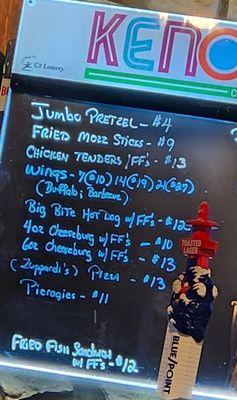 KENO
CT Lottery
Jumbo Pretzel - $4
Fried Mozz Sticks - $9
Chicken Tenders / FF's - $13
Wings - 7(@10) 14(@19) 21(@27)
(Buffalo; Barbecue)
Big Bite Hot Dog w/FF's - $12
4oz Cheeseburg w/FF's - $10
6oz Cheeseburg w/FF's - $13
(Zuppardi's) Pizza - $13
Pierogies - $11
Fried Fish Sandwich
w/FF's - $12
TOASTED
LAGER
BLUE/POINT